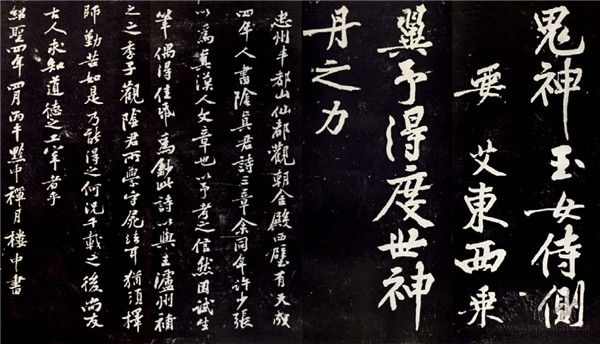 鬼神玉女侍側
要 艾東西乘
翼予得度世神
丹之力
忠州丰都山仙都觀朝金殿西壁有天成
四年人書陰真君詩三章余同年許少張
以為真漢人文章也以予考之信然因試生
筆偶得佳紙為鈔此詩以與王瀘州補
之之季子觀陰君所學守屍法耳猶須擇
師勤苦如是乃能得之何況千載之後尚友
古人求知道德之工宰者乎
紹聖四年四月丙午黔中禪月樓中書